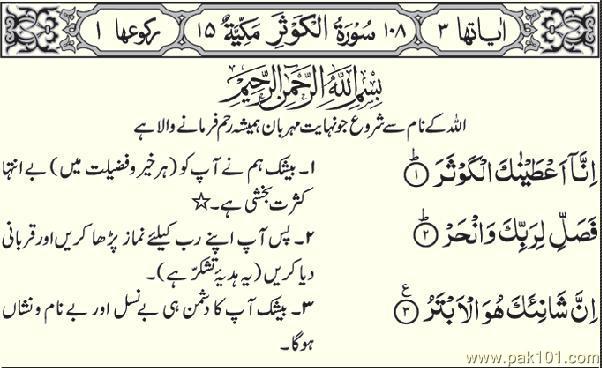 اٰیاتھا ۳ ۱۰۸ سُوْرَۃُ الْکَوْثَرِ مَکِّیَّۃٌ ۱۵ رکوعھا ۱
بِسْمِ اللّٰهِ الرَّحْمٰنِ الرَّحِیْمِ
اللہ کے نام سے شروع جو نہایت مہربان ہمیشہ رحم فرمانے والا ہے
اِنَّاۤ اَعْطَیْنٰكَ الْكَوْثَرَؕ ﴿۱﴾
۱۔ بیشک ہم نے آپ کو (ہر خیر و فضیلت میں) بے انتہا
کثرت بخشی ہے۔☆
فَصَلِّ لِرَبِّكَ وَانْحَرْؕ ﴿۲﴾
۲۔ پس آپ اپنے رب کیلئے نماز پڑھا کریں اور قربانی
دیا کریں (یہ ہدیۂ تشکّر ہے)۔
اِنَّ شَانِئَكَ هُوَ الْاَبْتَرُ ﴿۳﴾ ع
۳۔ بیشک آپ کا دشمن ہی بے نسل اور بے نام و نشاں
ہوگا۔
www.pak101.com